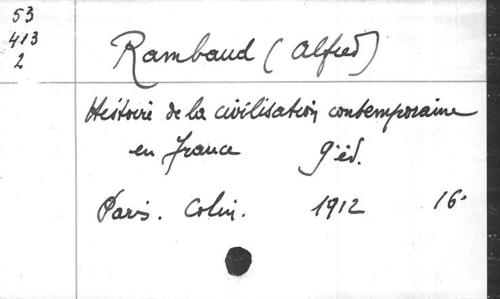 53
413
2
Rambaud (Alfred)
Histoire de la civilisation contemporaine
en France 9e éd.
Paris. Colin. 1912 16°